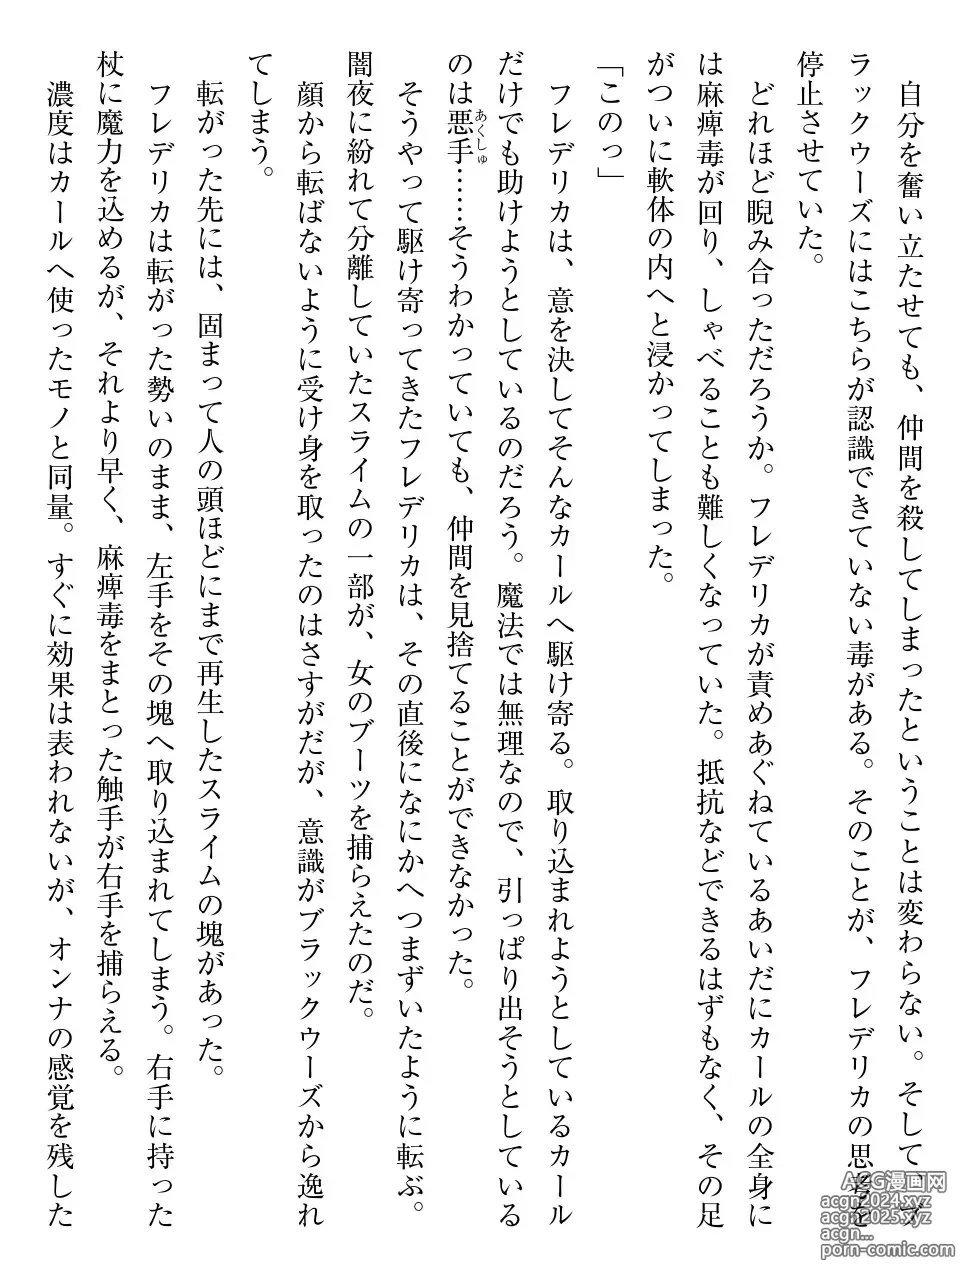 自分を奮い立たせても、仲間を殺してしまったということは変わらない。そして、ブ
ラックウーズにはこちらが認識できていない毒がある。そのことが、フレデリカの思考を
停止させていた。
どれほど睨み合っただろうか。フレデリカが責めあぐねているあいだにカールの全身に
は麻痺毒が回り、しゃべることも難しくなっていた。抵抗などできるはずもなく、その足
がついに軟体の内へと浸かってしまった。
「このっ」
フレデリカは、意を決してそんなカールへ駆け寄る。取り込まれようとしているカール
だけでも助けようとしているのだろう。魔法では無理なので、引っぱり出そうとしている
のは悪手あくしゅ……そうわかっていても、仲間を見捨てることができなかった。
そうやって駆け寄ってきたフレデリカは、その直後になにかへつまずいたように転ぶ。
闇夜に紛れて分離していたスライムの一部が、女のブーツを捕らえたのだ。
顔から転ばないように受け身を取ったのはさすがだが、意識がブラックウーズから逸れ
てしまう。
転がった先には、固まって人の頭ほどにまで再生したスライムの塊があった。
フレデリカは転がった勢いのまま、左手をその塊へ取り込まれてしまう。右手に持った
杖に魔力を込めるが、それより早く、麻痺毒をまとった触手が右手を捕らえる。
濃度はカールへ使ったモノと同量。すぐに効果は表われないが、オンナの感覚を残した
ACG漫画网
acgn2024.xyz
acgn2025.xyz
acgn...
porn-comic.com